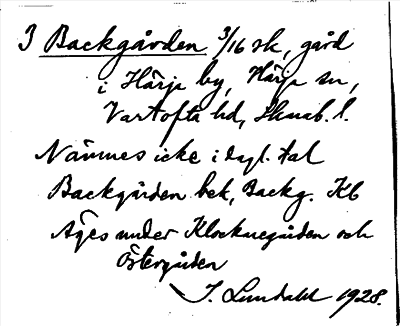 3 Backgården 3/16 sk, gård
i Härja by, Härja sn,
Vartofta hd, Skarab. l.
Nämnes icke i dagl. tal
Backgården bek, Backg. Kb
Äges under Klockaregården och
Östergården
J. Lundahl 1928.